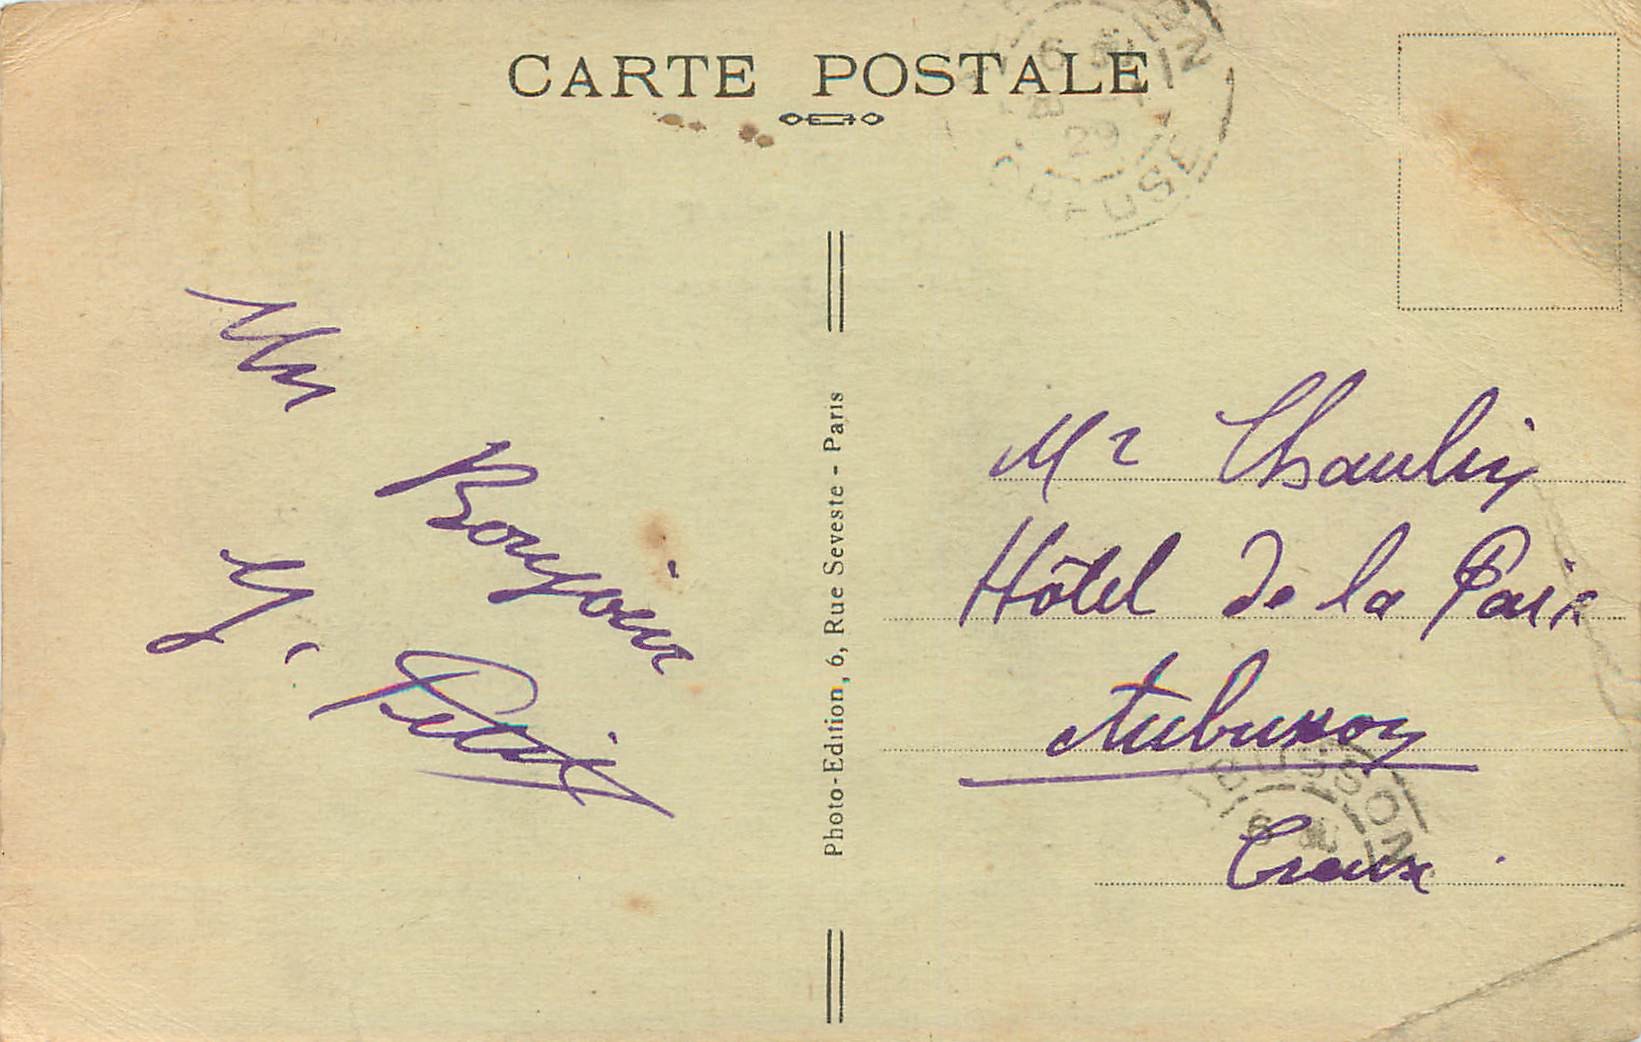 CARTE POSTALE
29
CREUSE
Un
Bonjour
Y. Petit
Photo-Edition, 6, Rue Seveste - Paris
Mr Chaulin
Hôtel de la Paix
Aubusson
Creux
BUSSON
6